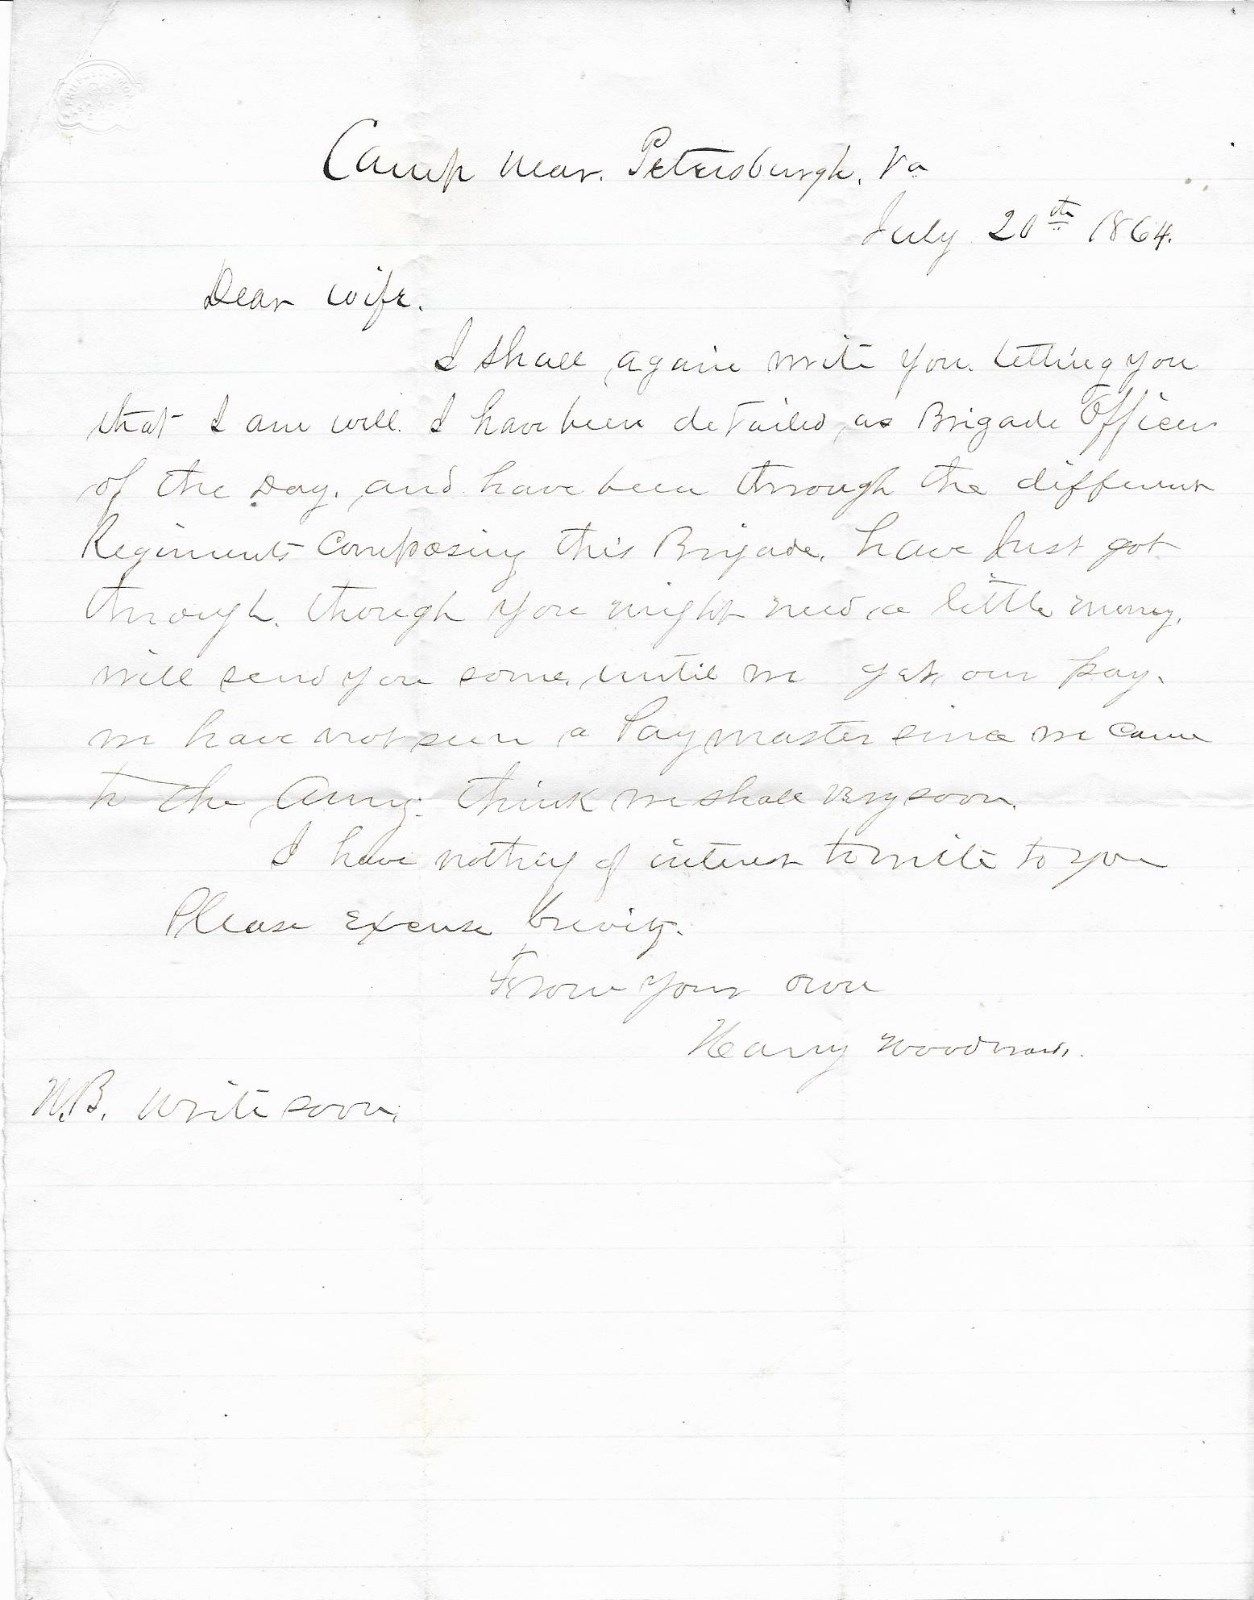 Camp near. Petersburgh, Va
July 20th 1864.
Dear wife.
I shall again write you. letting you
that I am well. I have been detailed, as Brigade Officer
of the Day, and have been through the different
Regiments Composing this Brigade, have Just got
through. though you might need a little money,
will send you some, until we get our pay.
we have not seen a Paymaster since we came
to the Army. think we shall very soon.
I have nothing of interest to write to you
Please Excuse brevity.
From your own
Harry
N.B. Write soon.